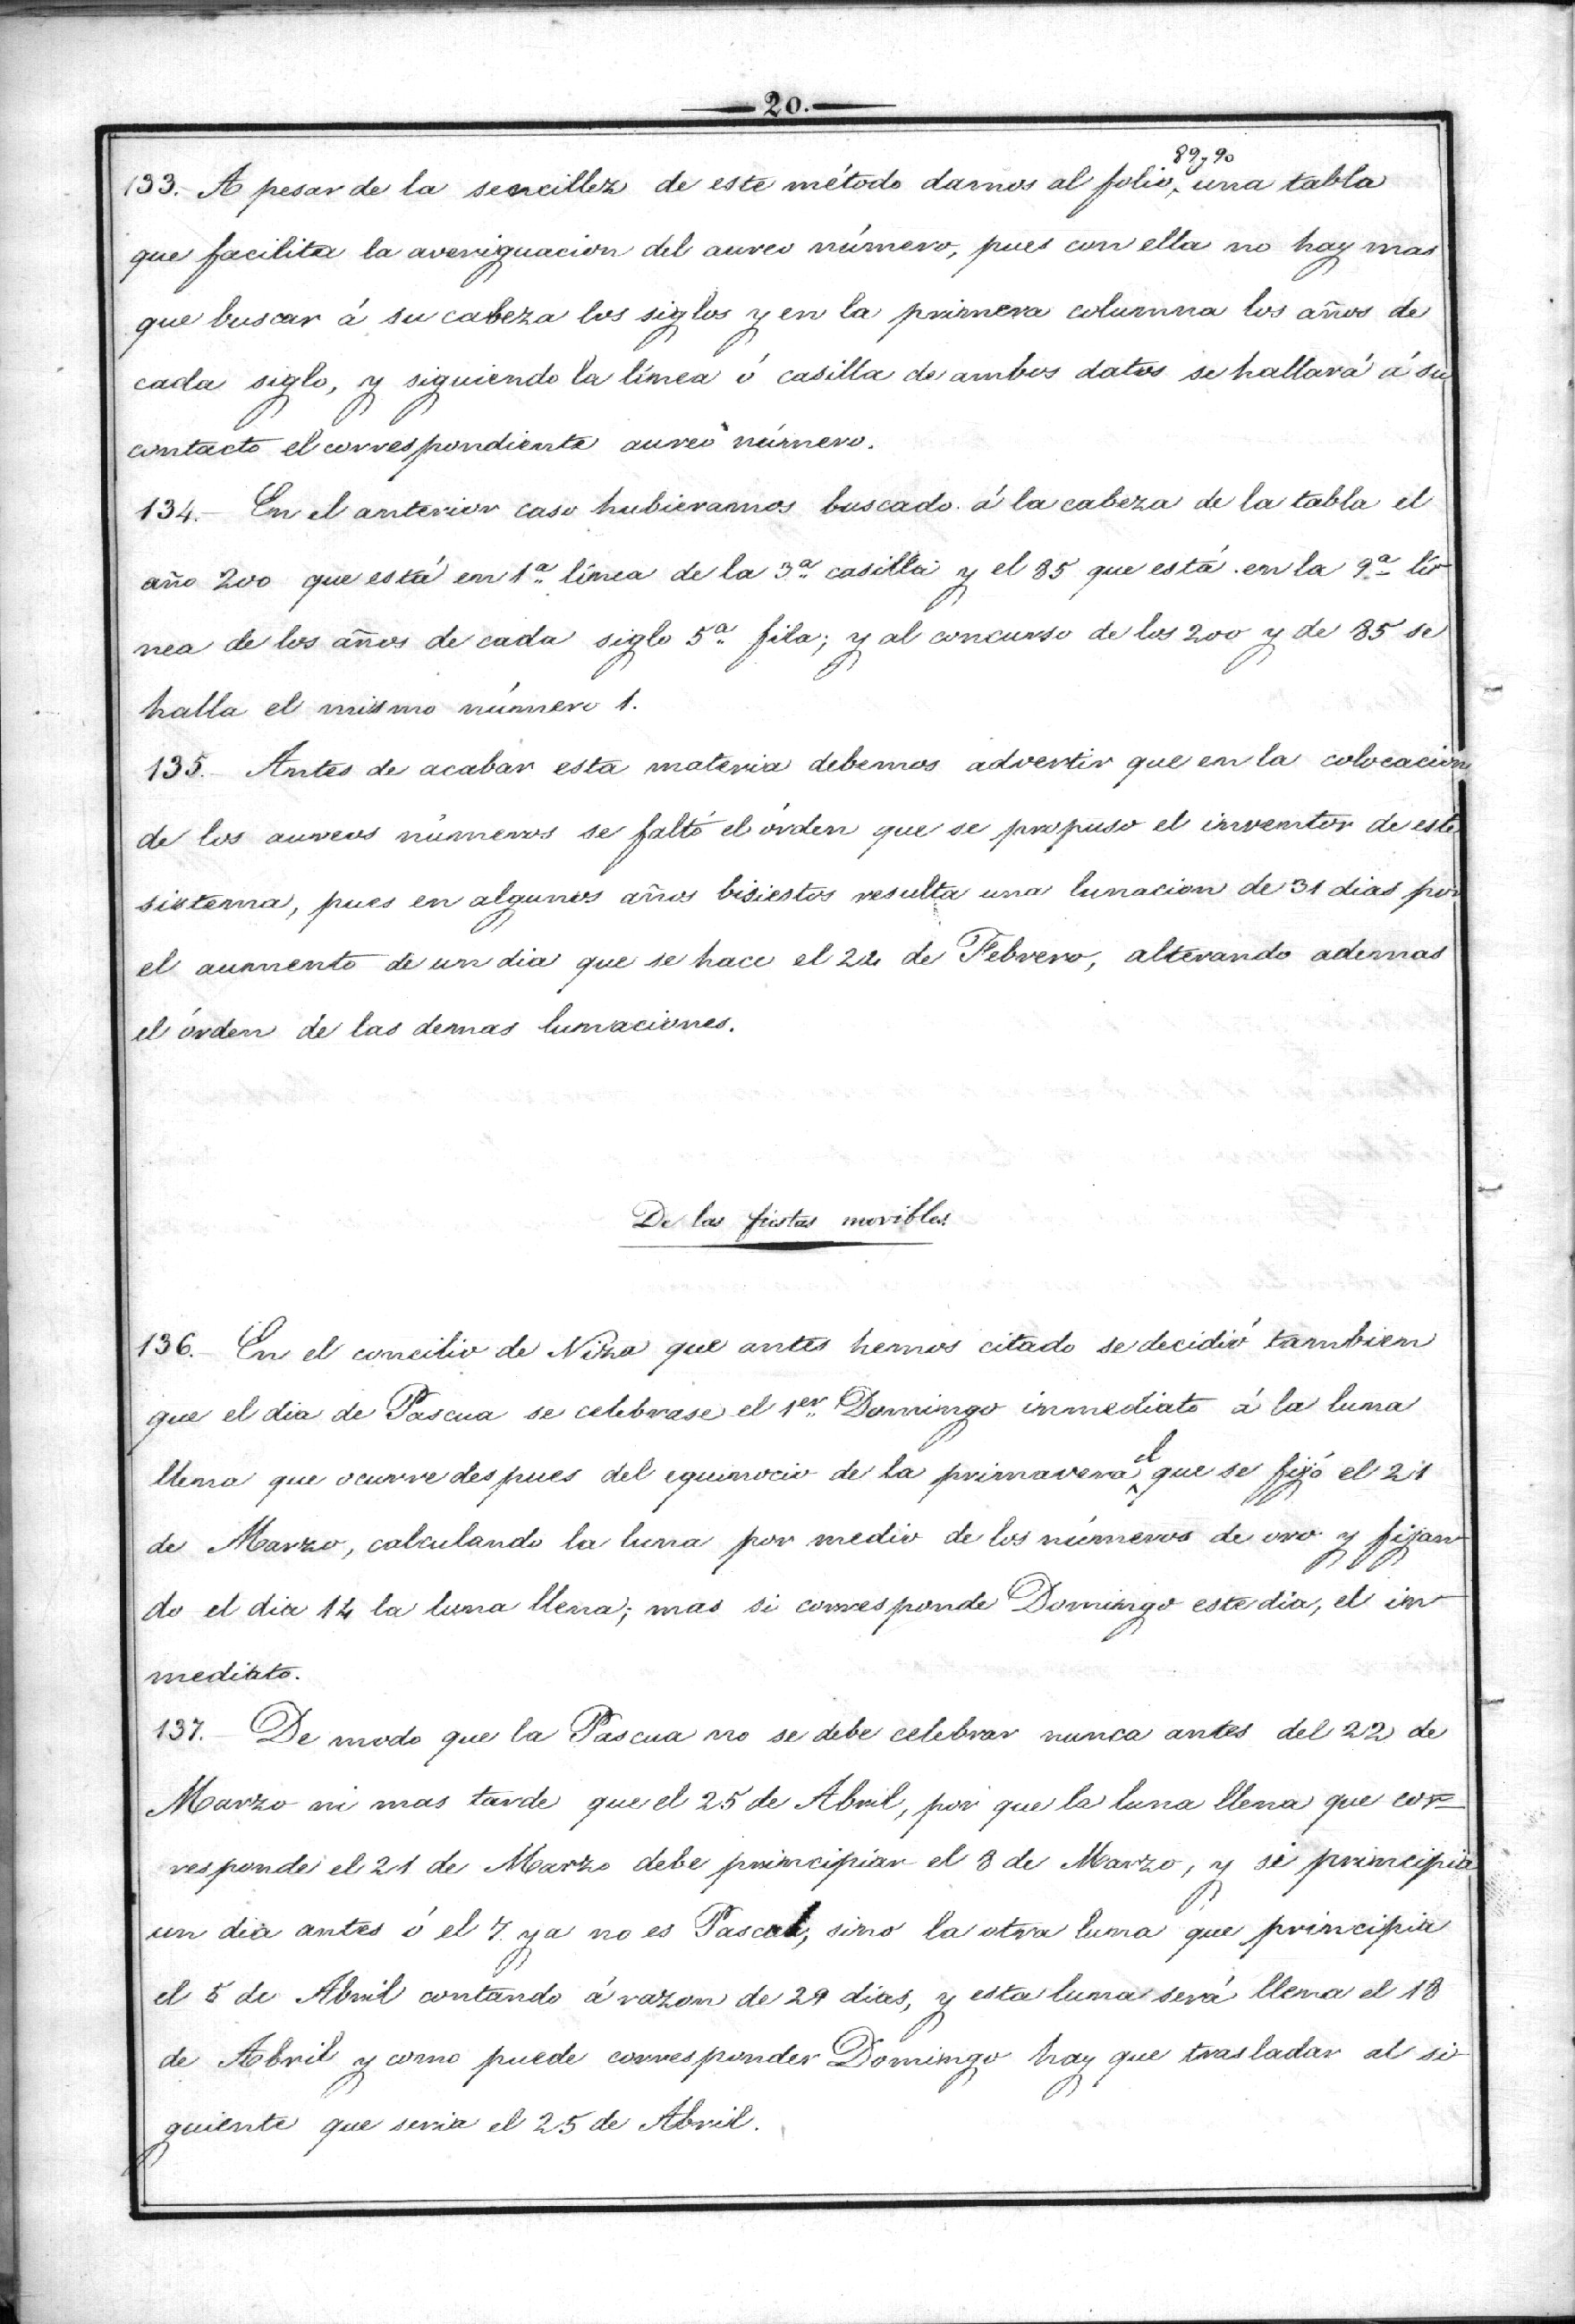 20.
133. A pesar de la sencillez de este método damos al folio, 89 y 90 una tabla
que facilita la averiguacion del aureo número, pues con ella no hay mas
que buscar á su cabeza los siglos y en la primera columna los años de
cada siglo, y siguiendo la línea ó casilla de ambos datos se hallará á su
contacto el correspondiente aureo número.
134. En el anterior caso hubieramos buscado á la cabeza de la tabla el
año 200 que está en 1ª línea de la 3ª casilla y el 85 que está en la 9ª lí-
nea de los años de cada siglo 5ª fila; y al concurso de los 200 y de 85 se
halla el mismo número 1.
135. Antes de acabar esta materia debemos advertir que en la colocacion
de los aureos números se faltó el órden que se propuso el inventor de este
sistema, pues en algunos años bisiestos resulta una lunacion de 31 dias por
el aumento de un dia que se hace el 24 de Febrero, alterando ademas
el órden de las demas lunaciones.
De las fiestas movibles.
136. En el concilio de Niza que antes hemos citado se decidió tambien
que el dia de Pascua se celebrase el 1er Domingo inmediato á la luna
llena que ocurre despues del equinocio de la primavera el que se fijó el 21
de Marzo, calculando la luna por medio de los números de oro y fijan-
do el dia 14 la luna llena; mas si corresponde Domingo este dia, el in-
mediato.
137. De modo que la Pascua no se debe celebrar nunca antes del 22 de
Marzo ni mas tarde que el 25 de Abril, por que la luna llena que cor-
responde el 21 de Marzo debe principiar el 8 de Marzo, y si principia
un dia antes ó el 7 ya no es Pascal, sino la otra luna que principia
el 5 de Abril contando á razon de 29 dias, y esta luna será llena el 18
de Abril y como puede corresponder Domingo hay que trasladar al si-
guiente que seria el 25 de Abril.